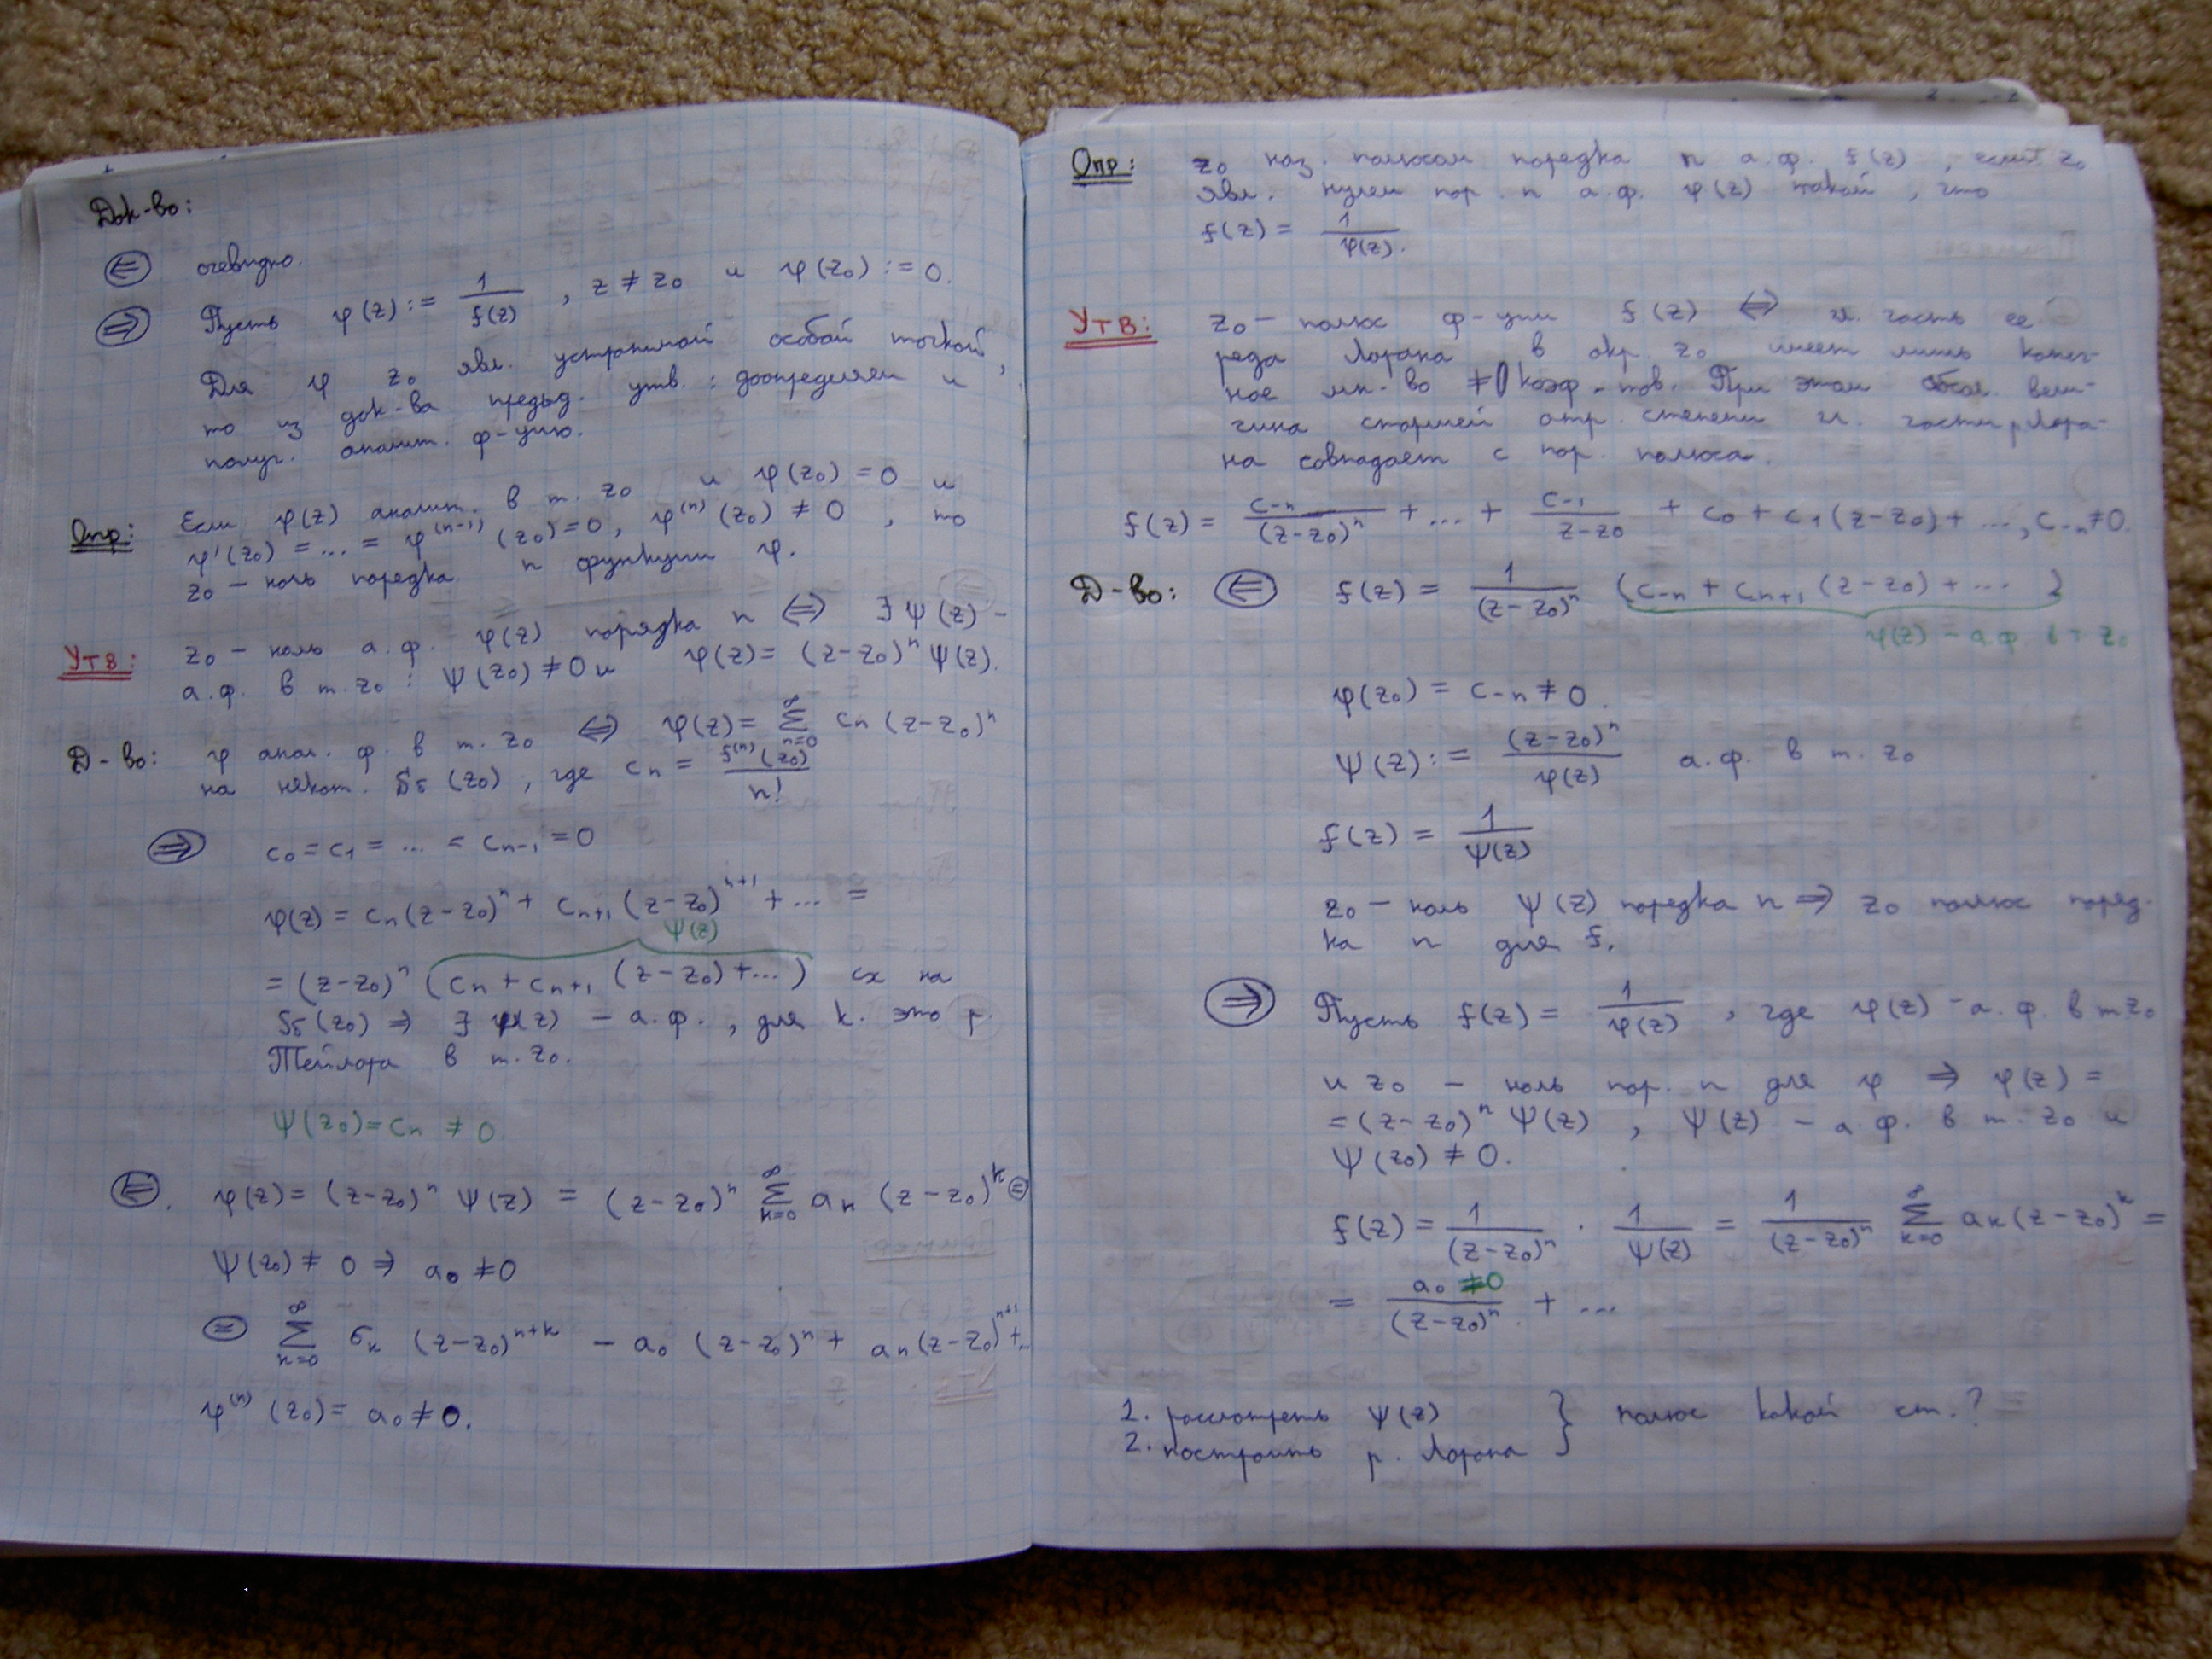 Док-во:
⇐ очевидно.
⇒ Пусть φ(z) := 1/f(z) , z ≠ z₀ и φ(z₀) := 0.
Для φ z₀ явл. устранимой особой точкой,
то из док-ва предыд. утв. : доопределяем и
получ. аналит. ф-цию.
Опр: Если φ(z) аналит. в т. z₀ и φ(z₀) = 0 и
φ'(z₀) = ... = φ⁽ⁿ⁻¹⁾(z₀) = 0, φ⁽ⁿ⁾(z₀) ≠ 0 , то
z₀ – ноль порядка n функции φ.
Утв: z₀ – ноль а.ф. φ(z) порядка n ⇔ ∃ ψ(z) –
а.ф. в т. z₀ : ψ(z₀) ≠ 0 и φ(z) = (z-z₀)ⁿ ψ(z).
Д-во: φ анал. ф. в т. z₀ ⇔ φ(z) = ∑_{n=0}^{∞} cₙ (z-z₀)ⁿ
на некот. Бб (z₀) , где cₙ = f⁽ⁿ⁾(z₀)/n!
⇒ c₀ = c₁ = ... = cₙ₋₁ = 0
φ(z) = cₙ(z-z₀)ⁿ + cₙ₊₁(z-z₀)ⁿ⁺¹ + ... =
ψ(z)
= (z-z₀)ⁿ (cₙ + cₙ₊₁ (z-z₀) + ...) сх на
Бб(z₀) ⇒ ∃ ψ(z) – а.ф. , для к. это р.
Тейлора в т. z₀.
ψ(z₀) = cₙ ≠ 0
⇐. φ(z) = (z-z₀)ⁿ ψ(z) = (z-z₀)ⁿ ∑_{k=0}^{∞} aₖ (z-z₀)ᵏ =
ψ(z₀) ≠ 0 ⇒ a₀ ≠ 0
= ∑_{k=0}^{∞} бₖ (z-z₀)ⁿ⁺ᵏ – a₀ (z-z₀)ⁿ + aₙ(z-z₀)ⁿ⁺¹ + ...
φ⁽ⁿ⁾(z₀) = a₀ ≠ 0.
Опр: z₀ наз. полюсом порядка n а.ф. f(z) , если z₀
явл. нулем пор. n а.ф. φ(z) такой , что
f(z) = 1/φ(z).
Утв: z₀ – полюс ф-ции f(z) ⇔ гл. часть ее
ряда Лорана в окр. z₀ имеет лишь конеч-
ное мн-во ≠0 коэф-тов. При этом абсол. вели-
чина старшей отр. степени гл. части р Лора-
на совпадает с пор. полюса.
f(z) = c₋ₙ/(z-z₀)ⁿ + ... + c₋₁/(z-z₀) + c₀ + c₁(z-z₀) + ..., c₋ₙ ≠ 0.
Д-во: ⇐ f(z) = 1/(z-z₀)ⁿ (c₋ₙ + cₙ₊₁ (z-z₀) + ... )
φ(z) – а.ф в т z₀
φ(z₀) = c₋ₙ ≠ 0.
ψ(z) := (z-z₀)ⁿ/φ(z) а.ф. в т. z₀
f(z) = 1/ψ(z)
z₀ – ноль ψ(z) порядка n ⇒ z₀ полюс поряд-
ка n для f.
⇒ Пусть f(z) = 1/φ(z) , где φ(z) – а.ф. в т z₀
и z₀ – ноль пор. n для φ ⇒ φ(z) =
= (z-z₀)ⁿ ψ(z) , ψ(z) – а.ф. в т. z₀ и
ψ(z₀) ≠ 0.
f(z) = 1/(z-z₀)ⁿ · 1/ψ(z) = 1/(z-z₀)ⁿ ∑_{k=0}^{∞} aₖ(z-z₀)ᵏ =
= a₀ ≠0/(z-z₀)ⁿ + ...
1. рассмотреть ψ(z) } полюс какой ст.?
2. построить р. Лорана